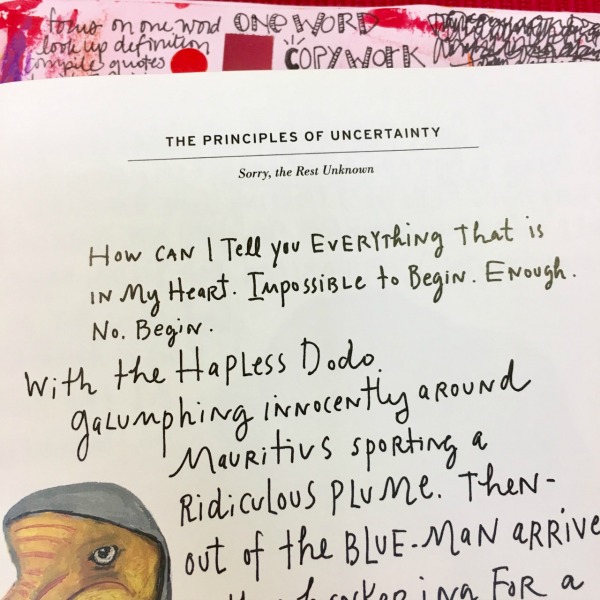 focus on one word ONE WORD
look up definition
compile quotes COPYWORK
THE PRINCIPLES OF UNCERTAINTY
Sorry, the Rest Unknown
How CAN I Tell you EVERYThing That is
iN My HeaRT. Impossible to Begin. Enough.
No. Begin.
With the Hapless Dodo.
galumphing innocently around
Mauritius sporting a
Ridiculous Plume. Then-
out of the BLUE-MaN ARRIVE
FOR a